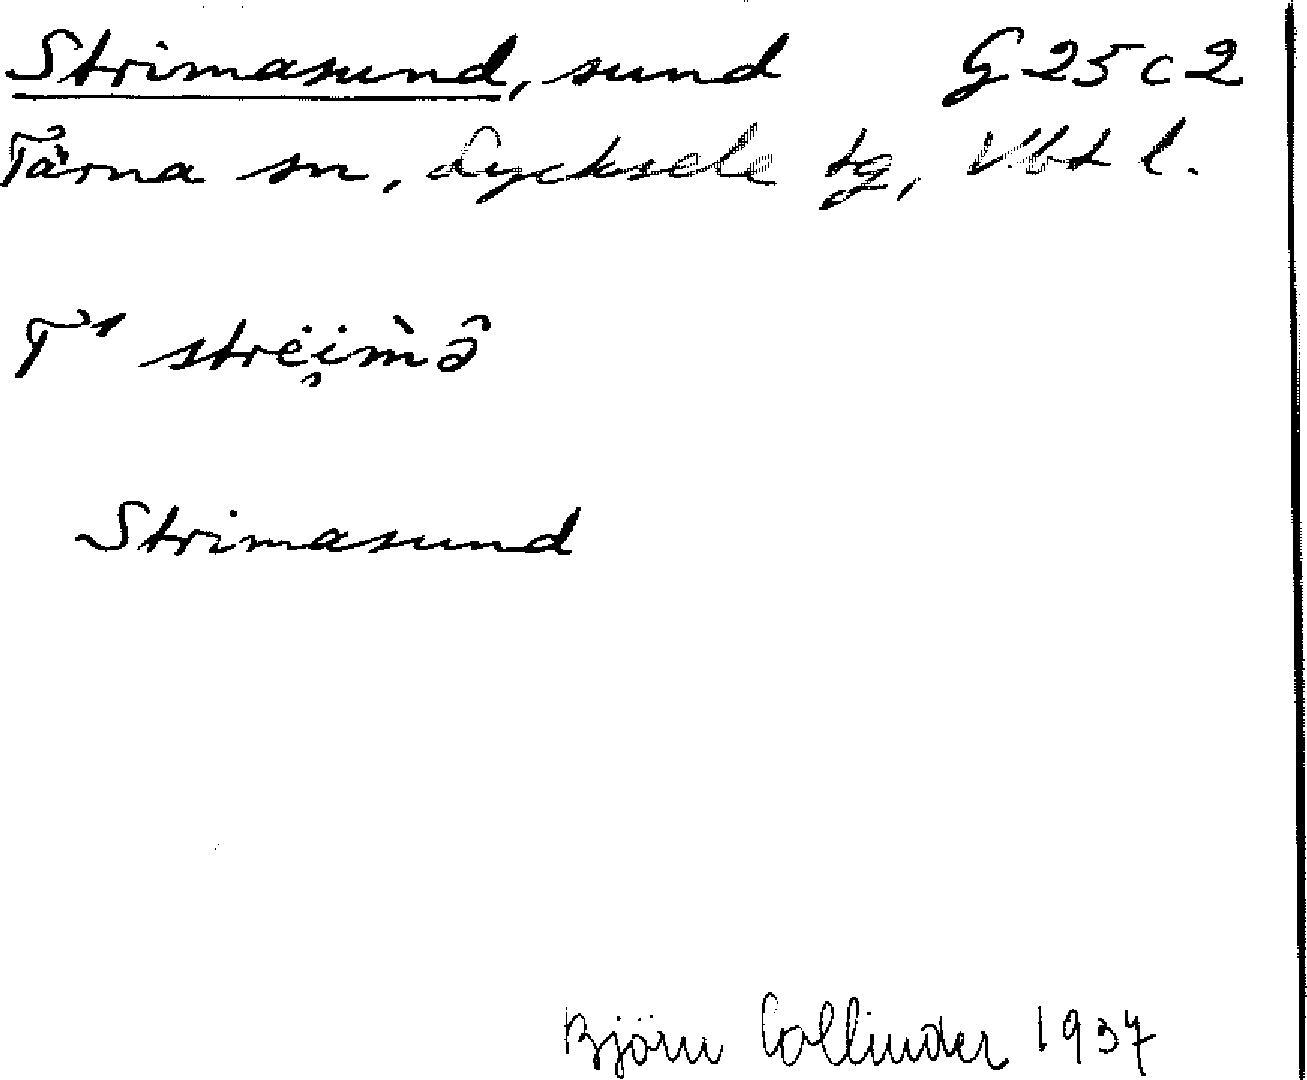 Strimasund, sund G 25 c 2
Tärna sn, Lycksele tg, Vbt l.
T¹ strëi̮m̀ə̂
Strimasund
Björn Collinder 1937